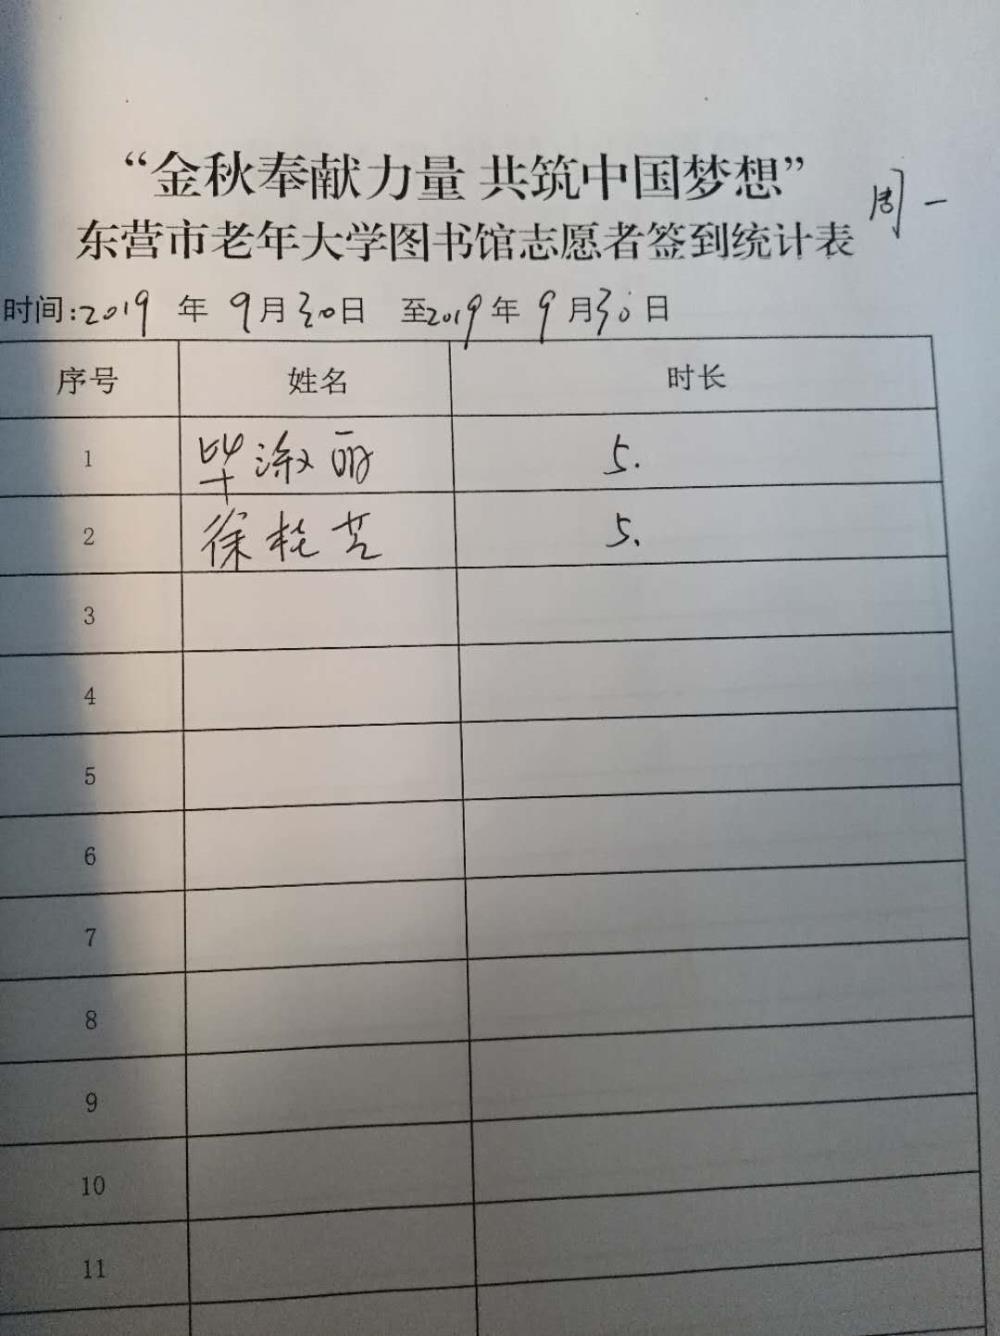 “金秋奉献力量 共筑中国梦想”
周一
东营市老年大学图书馆志愿者签到统计表
时间:2019 年 9月30日 至2019年 9月30日
序号 姓名 时长
1 毕淑丽 5.
2 徐桂芝 5.
3
4
5
6
7
8
9
10
11